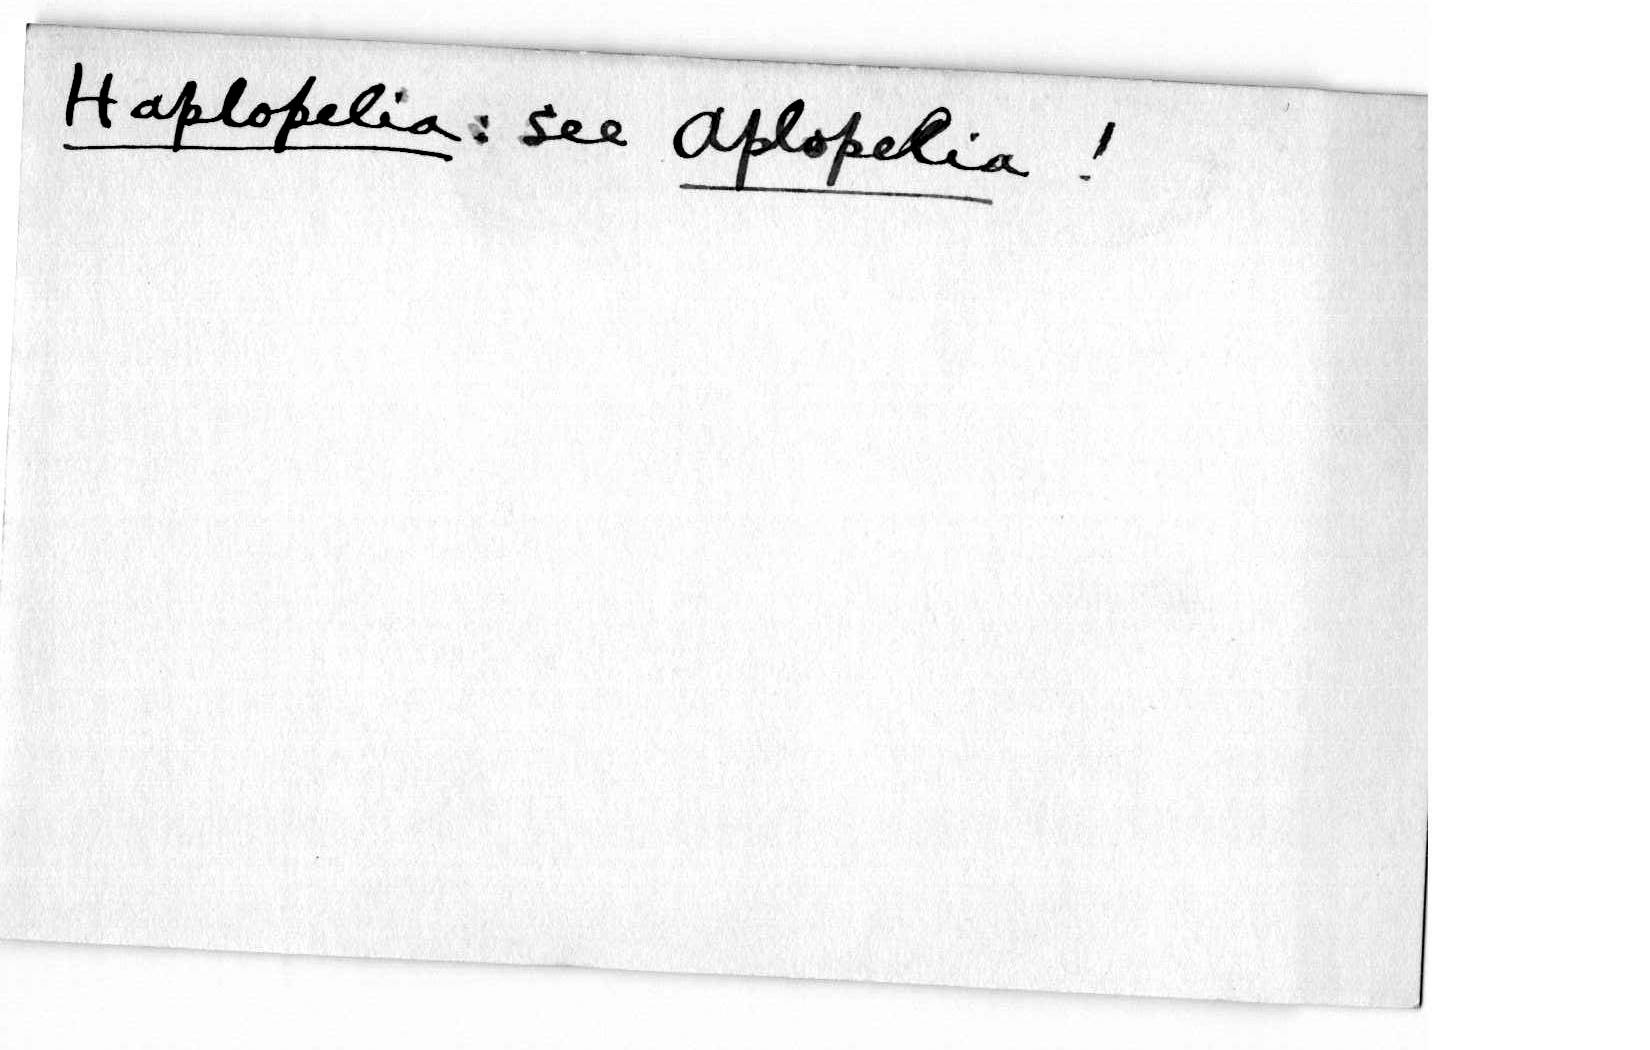 Haplopelia: see Aplopelia !